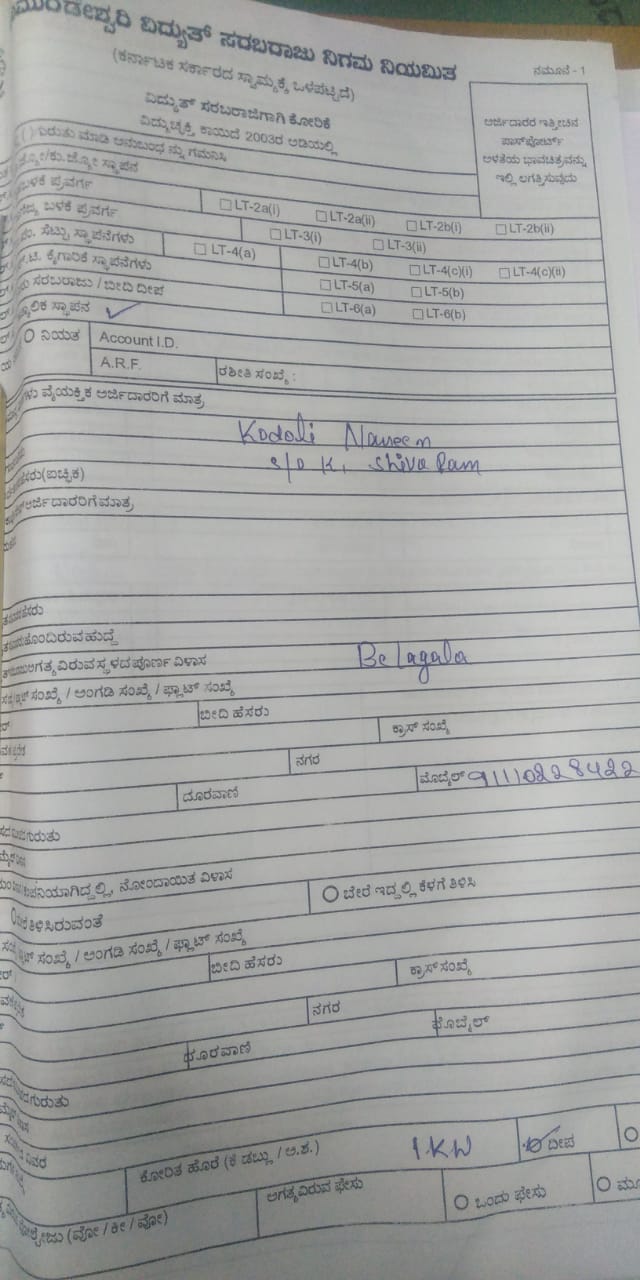 ಮುಂಡೇಶ್ವರಿ ವಿದ್ಯುತ್ ಸರಬರಾಜು ನಿಗಮ ನಿಯಮಿತ
ನಮೂನೆ - 1
(ಕರ್ನಾಟಕ ಸರ್ಕಾರದ ಸ್ವಾಮ್ಯಕ್ಕೆ ಒಳಪಟ್ಟಿದೆ)
ವಿದ್ಯುತ್ ಸರಬರಾಜಿಗಾಗಿ ಕೋರಿಕೆ
ವಿದ್ಯುಚ್ಛಕ್ತಿ ಕಾಯಿದೆ 2003ರ ಅಡಿಯಲ್ಲಿ
ಅರ್ಜಿದಾರರ ಇತ್ತೀಚಿನ
ಪಾಸ್‌ಪೋರ್ಟ್
ಅಳತೆಯ ಭಾವಚಿತ್ರವನ್ನು
ಇಲ್ಲಿ ಲಗತ್ತಿಸುವುದು
( ) ಗುರುತು ಮಾಡಿ ಅನುಬಂಧ ನ್ನು ಗಮನಿಸಿ
ಸ್ಥಾಪನ
ಬಳಕೆ ಪ್ರವರ್ಗ
LT-2a(i) LT-2a(ii) LT-2b(i) LT-2b(ii)
ಬಳಕೆ ಪ್ರವರ್ಗ
LT-3(i) LT-3(ii)
ಸೆಟ್ಟು ಸ್ಥಾಪನೆಗಳು
LT-4(a) LT-4(b) LT-4(c)(i) LT-4(c)(ii)
ಕೈಗಾರಿಕೆ ಸ್ಥಾಪನೆಗಳು
LT-5(a) LT-5(b)
ಸರಬರಾಜು / ಬೀದಿ ದೀಪ
LT-6(a) LT-6(b)
ಸ್ಥಾಪನ ✓
ನಿಯತ Account I.D.
A.R.F. ರಶೀತಿ ಸಂಖ್ಯೆ :
ವೈಯಕ್ತಿಕ ಅರ್ಜಿದಾರರಿಗೆ ಮಾತ್ರ
Kodali Naveen
S/o K. Shiva Ram
(ಐಚ್ಛಿಕ)
ಅರ್ಜಿದಾರರಿಗೆ ಮಾತ್ರ
ಹೊಂದಿರುವ ಹುದ್ದೆ
ಅಗತ್ಯವಿರುವ ಸ್ಥಳದ ಪೂರ್ಣ ವಿಳಾಸ Belagala
ಸಂಖ್ಯೆ / ಅಂಗಡಿ ಸಂಖ್ಯೆ / ಫ್ಲಾಟ್ ಸಂಖ್ಯೆ
ಬೀದಿ ಹೆಸರು
ಕ್ರಾಸ್ ಸಂಖ್ಯೆ
ನಗರ
ದೂರವಾಣಿ ಮೊಬೈಲ್ 91110228422
ಗುರುತು
ಕಂಪನಿಯಾಗಿದ್ದಲ್ಲಿ, ನೋಂದಾಯಿತ ವಿಳಾಸ
ಬೇರೆ ಇದ್ದಲ್ಲಿ ಕೆಳಗೆ ತಿಳಿಸಿ
ತಿಳಿಸಿರುವಂತೆ
ಸಂಖ್ಯೆ / ಅಂಗಡಿ ಸಂಖ್ಯೆ / ಫ್ಲಾಟ್ ಸಂಖ್ಯೆ
ಬೀದಿ ಹೆಸರು ಕ್ರಾಸ್ ಸಂಖ್ಯೆ
ನಗರ
ದೂರವಾಣಿ ಮೊಬೈಲ್
ಗುರುತು
ವಿವರ
ಕೋರಿತ ಹೊರೆ (ಕೆ ಡಬ್ಲು / ಅ.ಶ.) 1.KW ದೀಪ
ಅಗತ್ಯವಿರುವ ಫೇಸು ಒಂದು ಫೇಸು